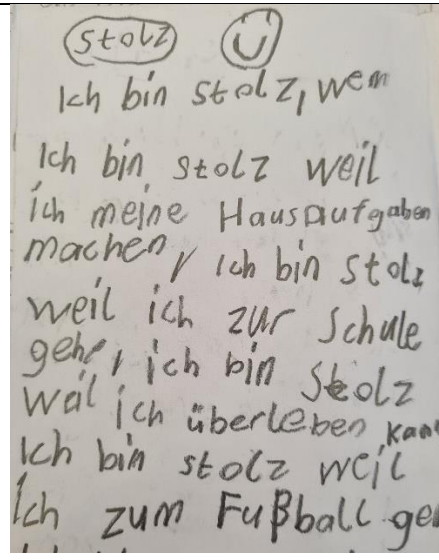 stolz
Ich bin stolz, wenn
Ich bin stolz weil
ich meine Hausaufgaben
machen, ich bin stolz
weil ich zur Schule
gehe, ich bin stolz
wal ich überleben kan
Ich bin stolz weil
Ich zum Fußball ge